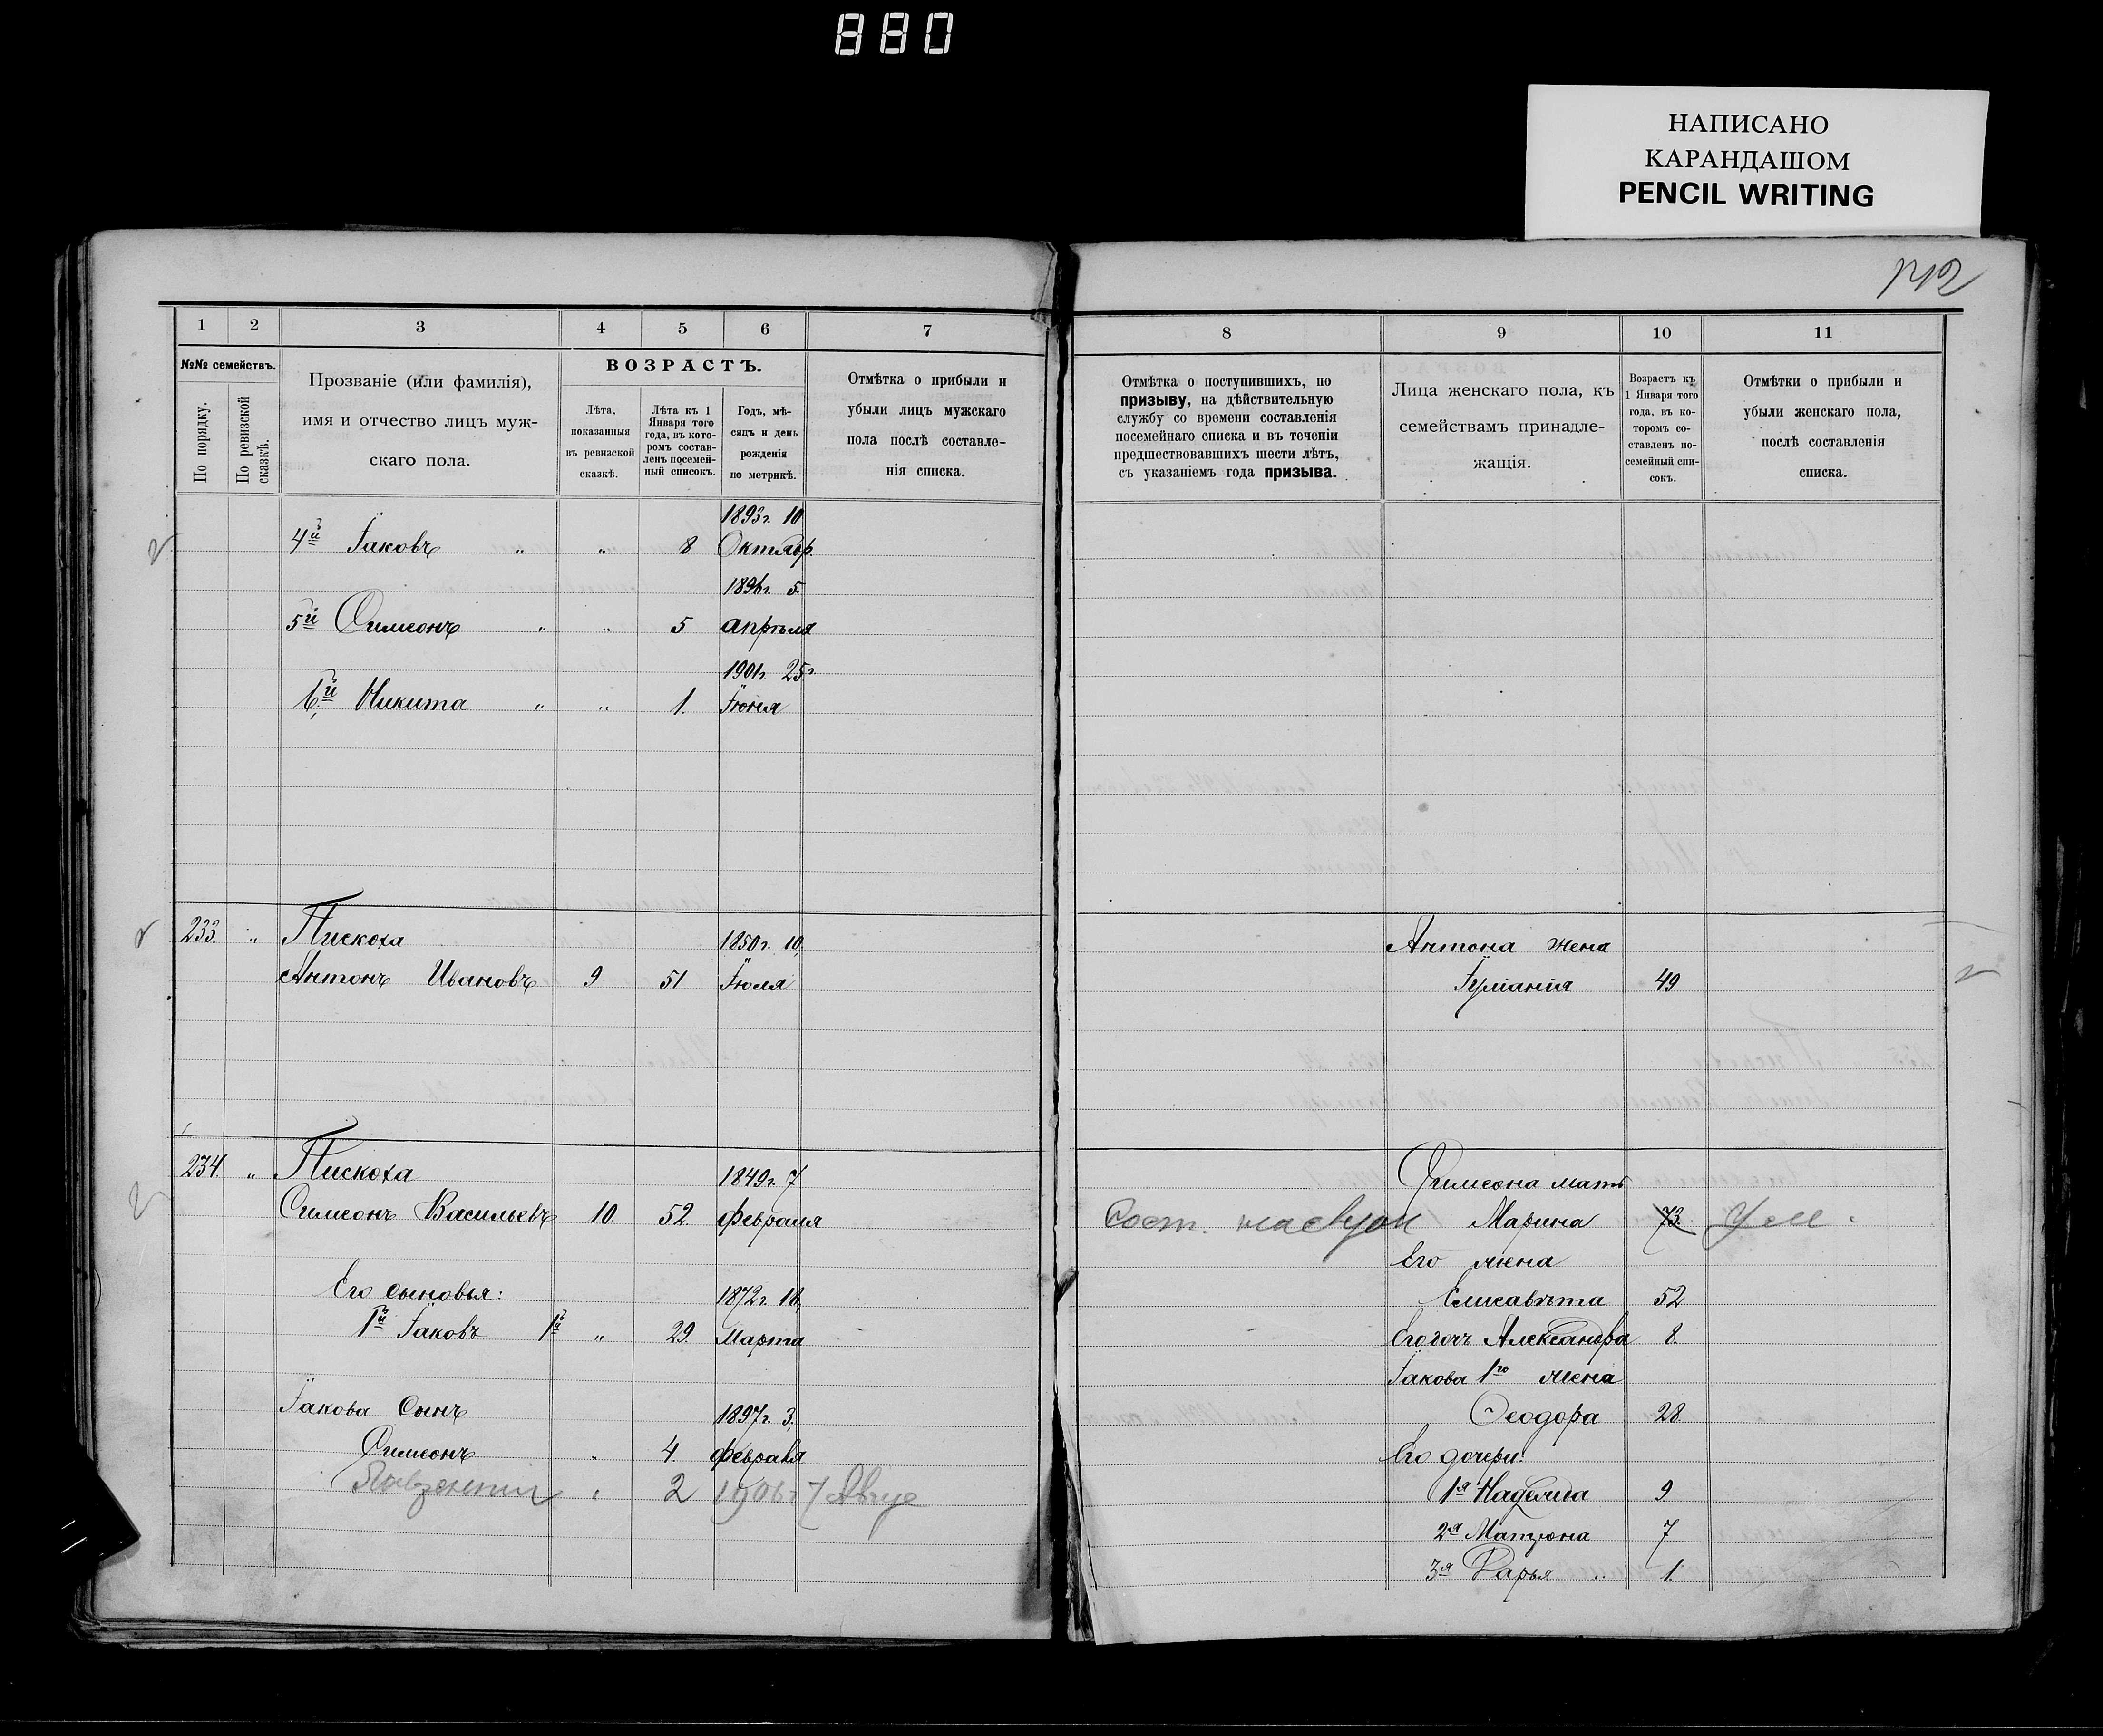 880
НАПИСАНО
КАРАНДАШОМ
PENCIL WRITING
142
1 2 3 4 5 6 7
№№ семействъ.
По порядку.
По ревизской сказкѣ.
Прозваніе (или фамилія),
имя и отчество лицъ муж-
скаго пола.
ВОЗРАСТЪ.
Лѣта,
показанныя
въ ревизской
сказкѣ.
Лѣта къ 1
Января того
года, въ кото-
ромъ состав-
ленъ посемей-
ный списокъ.
Годъ, мѣ-
сяцъ и день
рожденія
по метрикѣ.
Отмѣтка о прибыли и
убыли лицъ мужскаго
пола послѣ составле-
нія списка.
8 9 10 11
Отмѣтка о поступившихъ, по
призыву, на дѣйствительную
службу со времени составленія
посемейнаго списка и въ теченіи
предшествовавшихъ шести лѣтъ,
съ указаніемъ года призыва.
Лица женскаго пола, къ
семействамъ принадле-
жащія.
Возрастъ къ
1 Января того
года, въ ко-
торомъ со-
ставленъ по-
семейный спи-
сокъ.
Отмѣтки о прибыли и
убыли женскаго пола,
послѣ составленія
списка.
1893г. 10
4й Іаковъ " " 8 Октябр.
1896г. 5
5й Симеонъ " " 5 апрѣля
1901г. 25
6й Никита " " 1. Іюня
233. " Пискоха 1850г. 10
Антонъ Ивановъ 9 51 Іюля
Антона жена
Іуліанія 49
234. " Пискоха 1849г. 7
Симеонъ Васильевъ 10 52. февраля
Его сыновья: 1872г. 18,
1й Іаковъ 1й " 29. Марта
Іакова Сынъ 1897г. 3,
Симеонъ " 4. февраля
" 2 1906г 7 Авгус
Симеона мать
Сост. Марина 73. Ум.
Его жена
Елисавѣта 52
Его дочь Александра 8.
Іакова 1го жена
Ѳеодора 28.
Его дочери:
1я Надежда 9
2я Матрона 7
3я Дарья " 1.